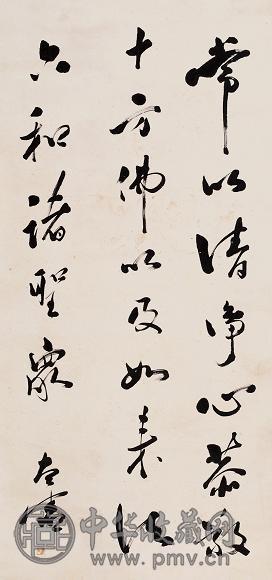 常以清淨心恭敬
十方佛以及如来法
六和諸聖眾
太虛
中华收藏网
www.pmv.cn